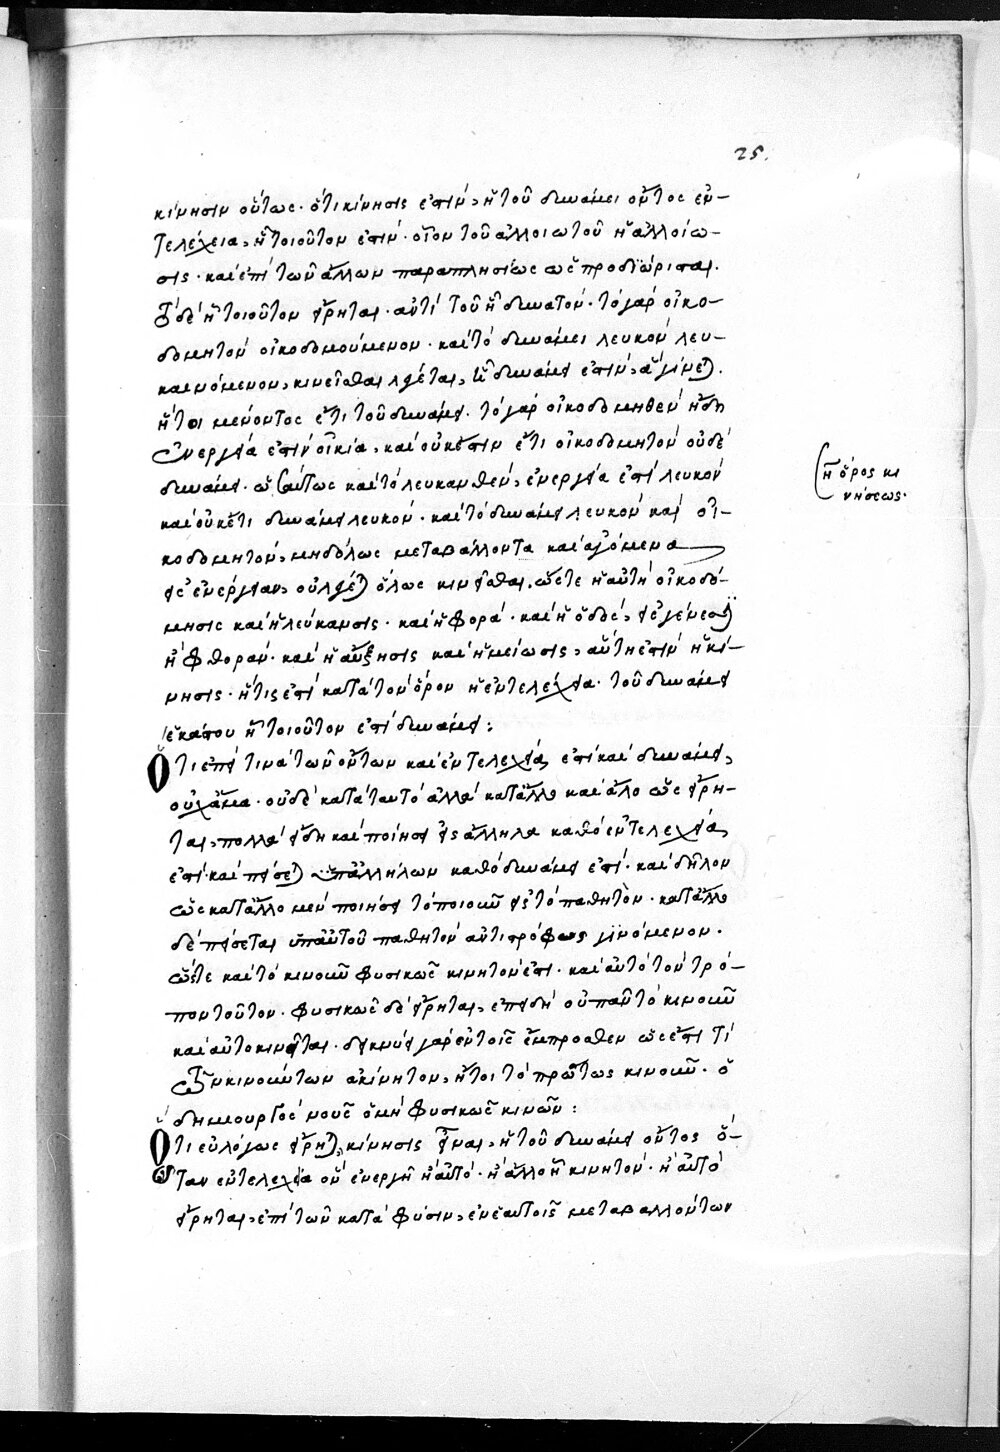 25.
κίνησιν οὕτως· ὅτι κίνησις ἐστὶν, ἡ τοῦ δυνάμει ὄντος ἐν-
τελέχεια, ᾗ τοιοῦτον ἐστίν· οἷον τοῦ ἀλλοιωτοῦ ἡ ἀλλοίω-
σις· καὶ ἐπὶ τῶν ἄλλων παραπλησίως ὡς προδιώρισται.
Τὸ δὲ ᾗ τοιοῦτον εἴρηται· ἀντὶ τοῦ ᾗ δυνατόν· τὸ γὰρ οἰκο-
δομητὸν οἰκοδομούμενον· καὶ τὸ δυνάμει λευκὸν λευ-
καινόμενον, κινεῖσθαι λέγεται, ᾗ δυνάμει ἐστὶν, ἃ γίνεται.
ἤτοι μένοντος ἔτι τοῦ δυνάμει· τὸ γὰρ οἰκοδομηθὲν ἤδη
ἐνεργεία ἐστὶν οἰκία, καὶ οὐκέστιν ἔτι οἰκοδομητὸν οὐδὲ
δυνάμει· ὡσαύτως καὶ τὸ λευκανθὲν, ἐνεργεία ἐστὶ λευκὸν
καὶ οὐκέτι δυνάμει λευκόν· καὶ τὸ δυνάμει λευκὸν καὶ οἰ-
κοδομητὸν, μηδόλως μεταβάλλοντα καὶ ἀγόμενα
εἰς ἐνέργειαν, οὐ λέγεται ὅλως κινεῖσθαι. ὥστε ἡ αὐτὴ οἰκοδό-
μησις καὶ ἡ λεύκανσις· καὶ ἡ φορά· καὶ ἡ ὁδὸς, εἰς γένεσιν
ἢ φθοράν· καὶ ἡ αὔξησις καὶ ἡ μείωσις, αὕτη ἐστὶν ἡ κί-
νησις· ἥτις ἐστὶ κατὰ τὸν ὅρον ἡ ἐντελέχεια· τοῦ δυνάμει
ἑκάστου ᾗ τοιοῦτον ἐστὶ δυνάμει:
Ὅτι ἐπεί τινα τῶν ὄντων καὶ ἐντελεχεία ἐστὶ καὶ δυνάμει,
οὐχ ἅμα· οὐδὲ κατὰ ταυτὸ ἀλλὰ κατ' ἄλλο καὶ ἄλλο ὡς εἴρη-
ται, πολλὰ ἤδη καὶ ποιήσει εἰς ἄλληλα καθὸ ἐντελεχεία
ἐστὶ· καὶ πείσεται ὑπ' ἀλλήλων καθὸ δυνάμει ἐστί· καὶ δῆλον
ὡς κατ' ἄλλο μὲν ποιήσει τὸ ποιοῦν εἰς τὸ παθητόν· κατ' ἄλλο
δὲ πείσεται ὑπ' αὐτοῦ παθητὸν ἀντιστρόφως γινόμενον·
ὥστε καὶ τὸ κινοῦν φυσικῶς κινητόν ἐστι· καὶ αὐτὸ τὸν τρό-
πον τοῦτον· φυσικῶς δὲ εἴρηται, ἐπειδὴ οὐ πᾶν τὸ κινοῦν
καὶ αὐτὸ κινεῖται· δείκνυσι γὰρ ἐν τοῖς ἔμπροσθεν ὡς ἔστι τί
τῶν κινούντων ἀκίνητον, ἤτοι τὸ πρώτως κινοῦν· ὁ
δημιουργὸς νοῦς ὁ μὴ φυσικῶς κινῶν:
Ὅτι εὐλόγως εἴρηται, κίνησις εἶναι, ἡ τοῦ δυνάμει ὄντος ὅ-
ταν ἐντελεχεία ὂν ἐνεργῇ ἢ αὐτὸ· ἢ ἄλλο ᾗ κινητόν· ἢ αὐτὸ
εἴρηται, ἐπὶ τῶν κατὰ φύσιν, ἐν ἑαυτοῖς μεταβαλλόντων
ἢ ὅρος κι
νήσεως·